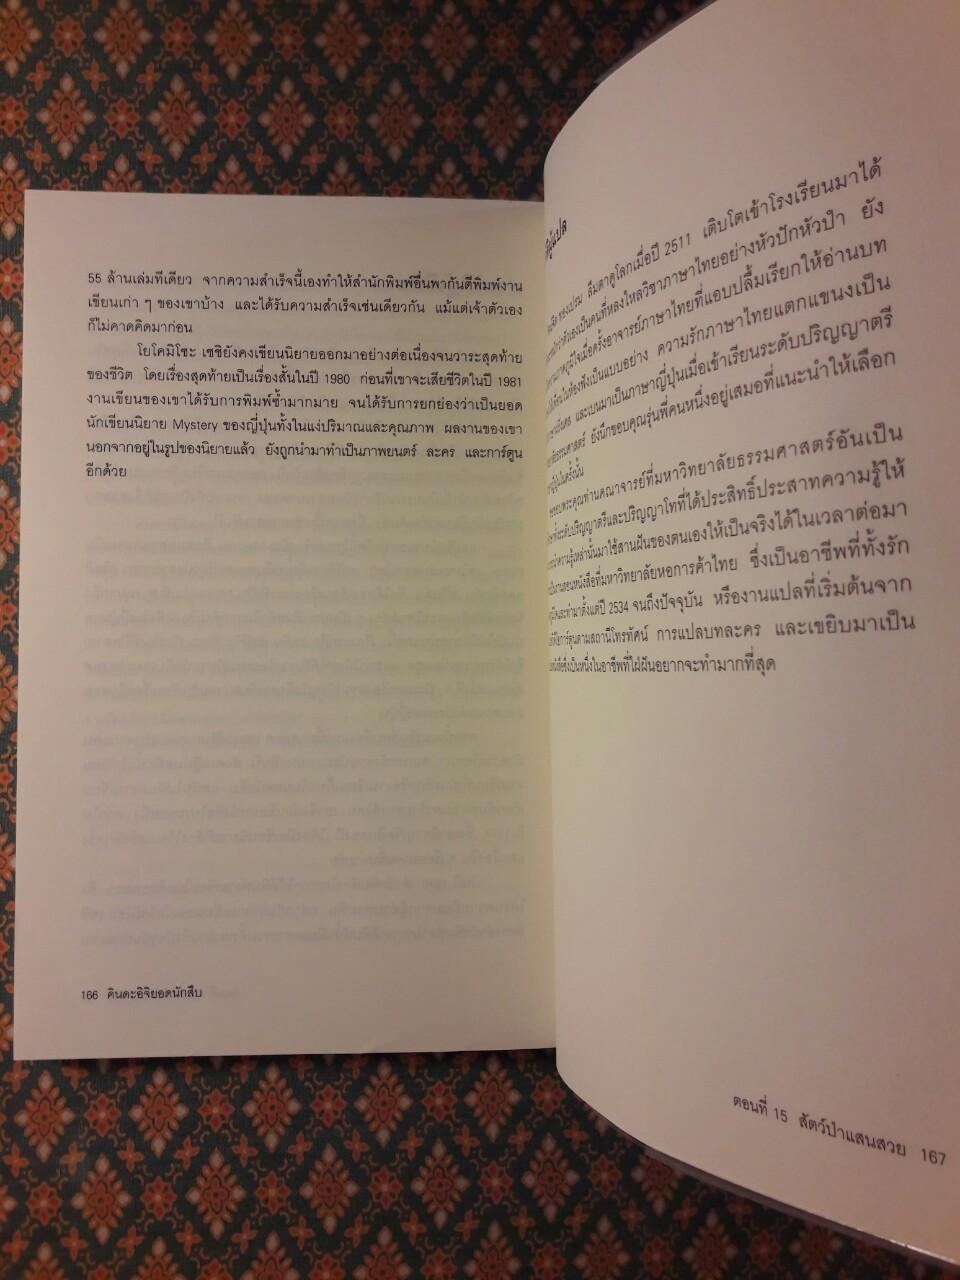 55 ล้านเล่มทีเดียว จากความสำเร็จนี้เองทำให้สำนักพิมพ์อื่นพากันตีพิมพ์งาน
เขียนเก่า ๆ ของเขาบ้าง และได้รับความสำเร็จเช่นเดียวกัน แม้แต่เจ้าตัวเอง
ก็ไม่คาดคิดมาก่อน
โยโคมิโซะ เซชิยังคงเขียนนิยายออกมาอย่างต่อเนื่องจนวาระสุดท้าย
ของชีวิต โดยเรื่องสุดท้ายเป็นเรื่องสั้นในปี 1980 ก่อนที่เขาจะเสียชีวิตในปี 1981
งานเขียนของเขาได้รับการพิมพ์ซ้ำมากมาย จนได้รับการยกย่องว่าเป็นยอด
นักเขียนนิยาย Mystery ของญี่ปุ่นทั้งในแง่ปริมาณและคุณภาพ ผลงานของเขา
นอกจากอยู่ในรูปของนิยายแล้ว ยังถูกนำมาทำเป็นภาพยนตร์ ละคร และการ์ตูน
อีกด้วย
166 คินดะอิจิยอดนักสืบ
ผู้แปล
ของเปรม ลืมตาดูโลกเมื่อปี 2511 เติบโตเข้าโรงเรียนมาได้
ตัวเองเป็นคนที่หลงใหลวิชาภาษาไทยอย่างหัวปักหัวปำ ยัง
ภาคภูมิใจเมื่อครั้งอาจารย์ภาษาไทยที่แอบปลื้มเรียกให้อ่านบท
ให้เพื่อนในห้องฟังเป็นแบบอย่าง ความรักภาษาไทยแตกแขนงเป็น
และเบนมาเป็นภาษาญี่ปุ่นเมื่อเข้าเรียนระดับปริญญาตรี
ธรรมศาสตร์ ยังนึกขอบคุณรุ่นพี่คนหนึ่งอยู่เสมอที่แนะนำให้เลือก
ญี่ปุ่นในครั้งนั้น
ขอบพระคุณท่านคณาจารย์ที่มหาวิทยาลัยธรรมศาสตร์อันเป็น
ที่ระดับปริญญาตรีและปริญญาโทที่ได้ประสิทธิ์ประสาทความรู้ให้
ความรู้เหล่านั้นมาใช้สานฝันของตนเองให้เป็นจริงได้ในเวลาต่อมา
เป็นงานสอนหนังสือที่มหาวิทยาลัยหอการค้าไทย ซึ่งเป็นอาชีพที่ทั้งรัก
และทำมาตั้งแต่ปี 2534 จนถึงปัจจุบัน หรืองานแปลที่เริ่มต้นจาก
การ์ตูนตามสถานีโทรทัศน์ การแปลบทละคร และเขยิบมาเป็น
หนังสือซึ่งเป็นหนึ่งในอาชีพที่ใฝ่ฝันอยากจะทำมากที่สุด
ตอนที่ 15 สัตว์ป่าแสนสวย 167